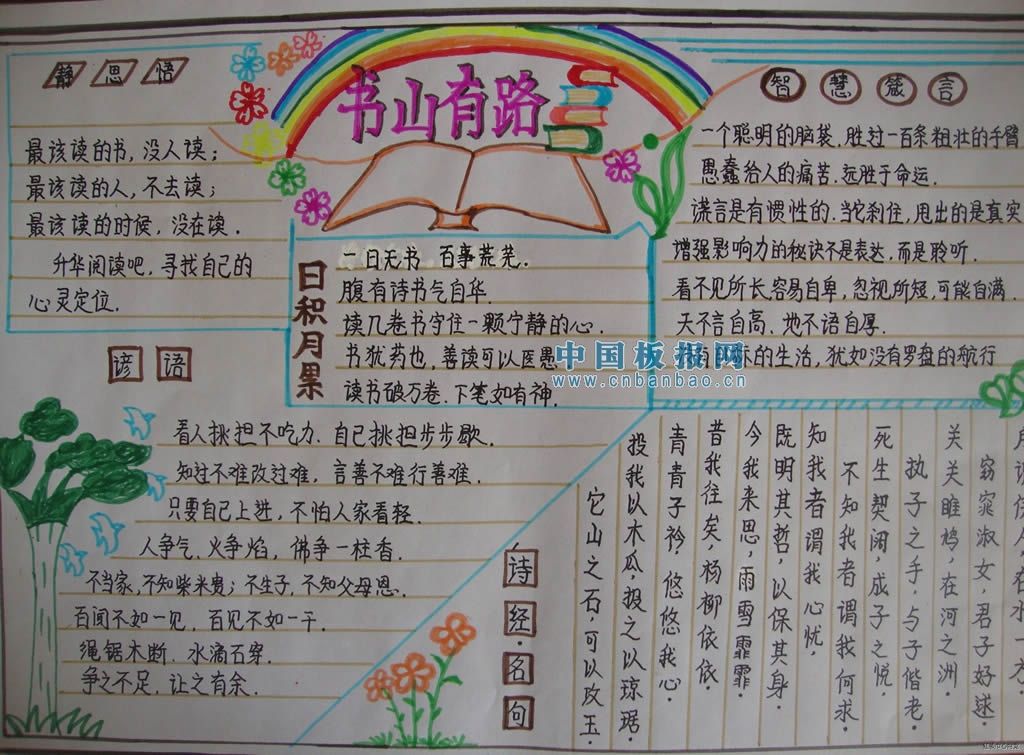 书山有路
静思悟
最该读的书，没人读；
最该读的人，不去读；
最该读的时候，没在读．
升华阅读吧，寻找自己的
心灵定位．
日积月累
一日无书 百事荒芜．
腹有诗书气自华．
读几卷书守住一颗宁静的心．
书犹药也，善读可以医愚
读书破万卷．下笔如有神．
智慧箴言
一个聪明的脑袋．胜过一百条粗壮的手臂
愚蠢给人的痛苦．远胜于命运．
谎言是有惯性的．当它刹住，甩出的是真实
增强影响力的秘诀不是表达，而是聆听．
看不见所长，容易自卑，忽视所短，可能自满．
天不言自高、地不语自厚．
标的生活，犹如没有罗盘的航行
中国板报网
www.cnbanbao.cn
谚语
看人挑担不吃力．自己挑担步步歇．
知过不难改过难，言善不难行善难．
只要自己上进，不怕人家看轻．
人争气．火争焰，佛争一柱香．
不当家，不知柴米贵；不生子，不知父母恩．
百闻不如一见，百见不如一干．
绳锯木断．水滴石穿．
争之不足，让之有余．
诗经·名句
在水一方．
窈窕淑女，君子好逑．
关关雎鸠，在河之洲．
执子之手，与子偕老．
死生契阔，成子之悦，
不知我者谓我何求
知我者谓我心忧，
既明其哲，以保其身．
今我来思，雨雪霏霏．
昔我往矣，杨柳依依．
青青子衿，悠悠我心．
投我以木瓜，投之以琼琚．
它山之石，可以攻玉．